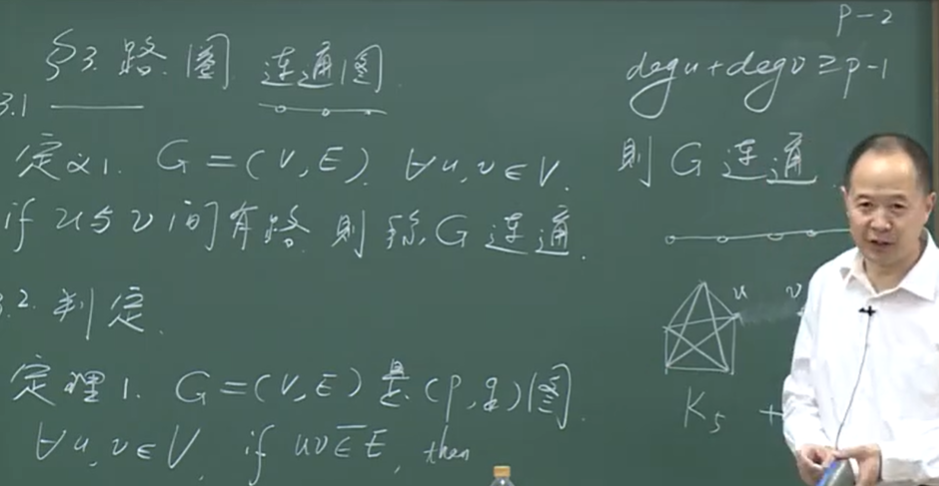 §3. 路.圈.连通图
3.1
定义1. G=(V,E). ∀u,v∈V.
if u与v间有路.则称G连通.
3.2.判定.
定理1. G=(V,E)是(p,q)图.
∀u,v∈V, if uv∈̅E, then
p-2
degu+degv≥p-1
则G连通.
u v
K₅ +